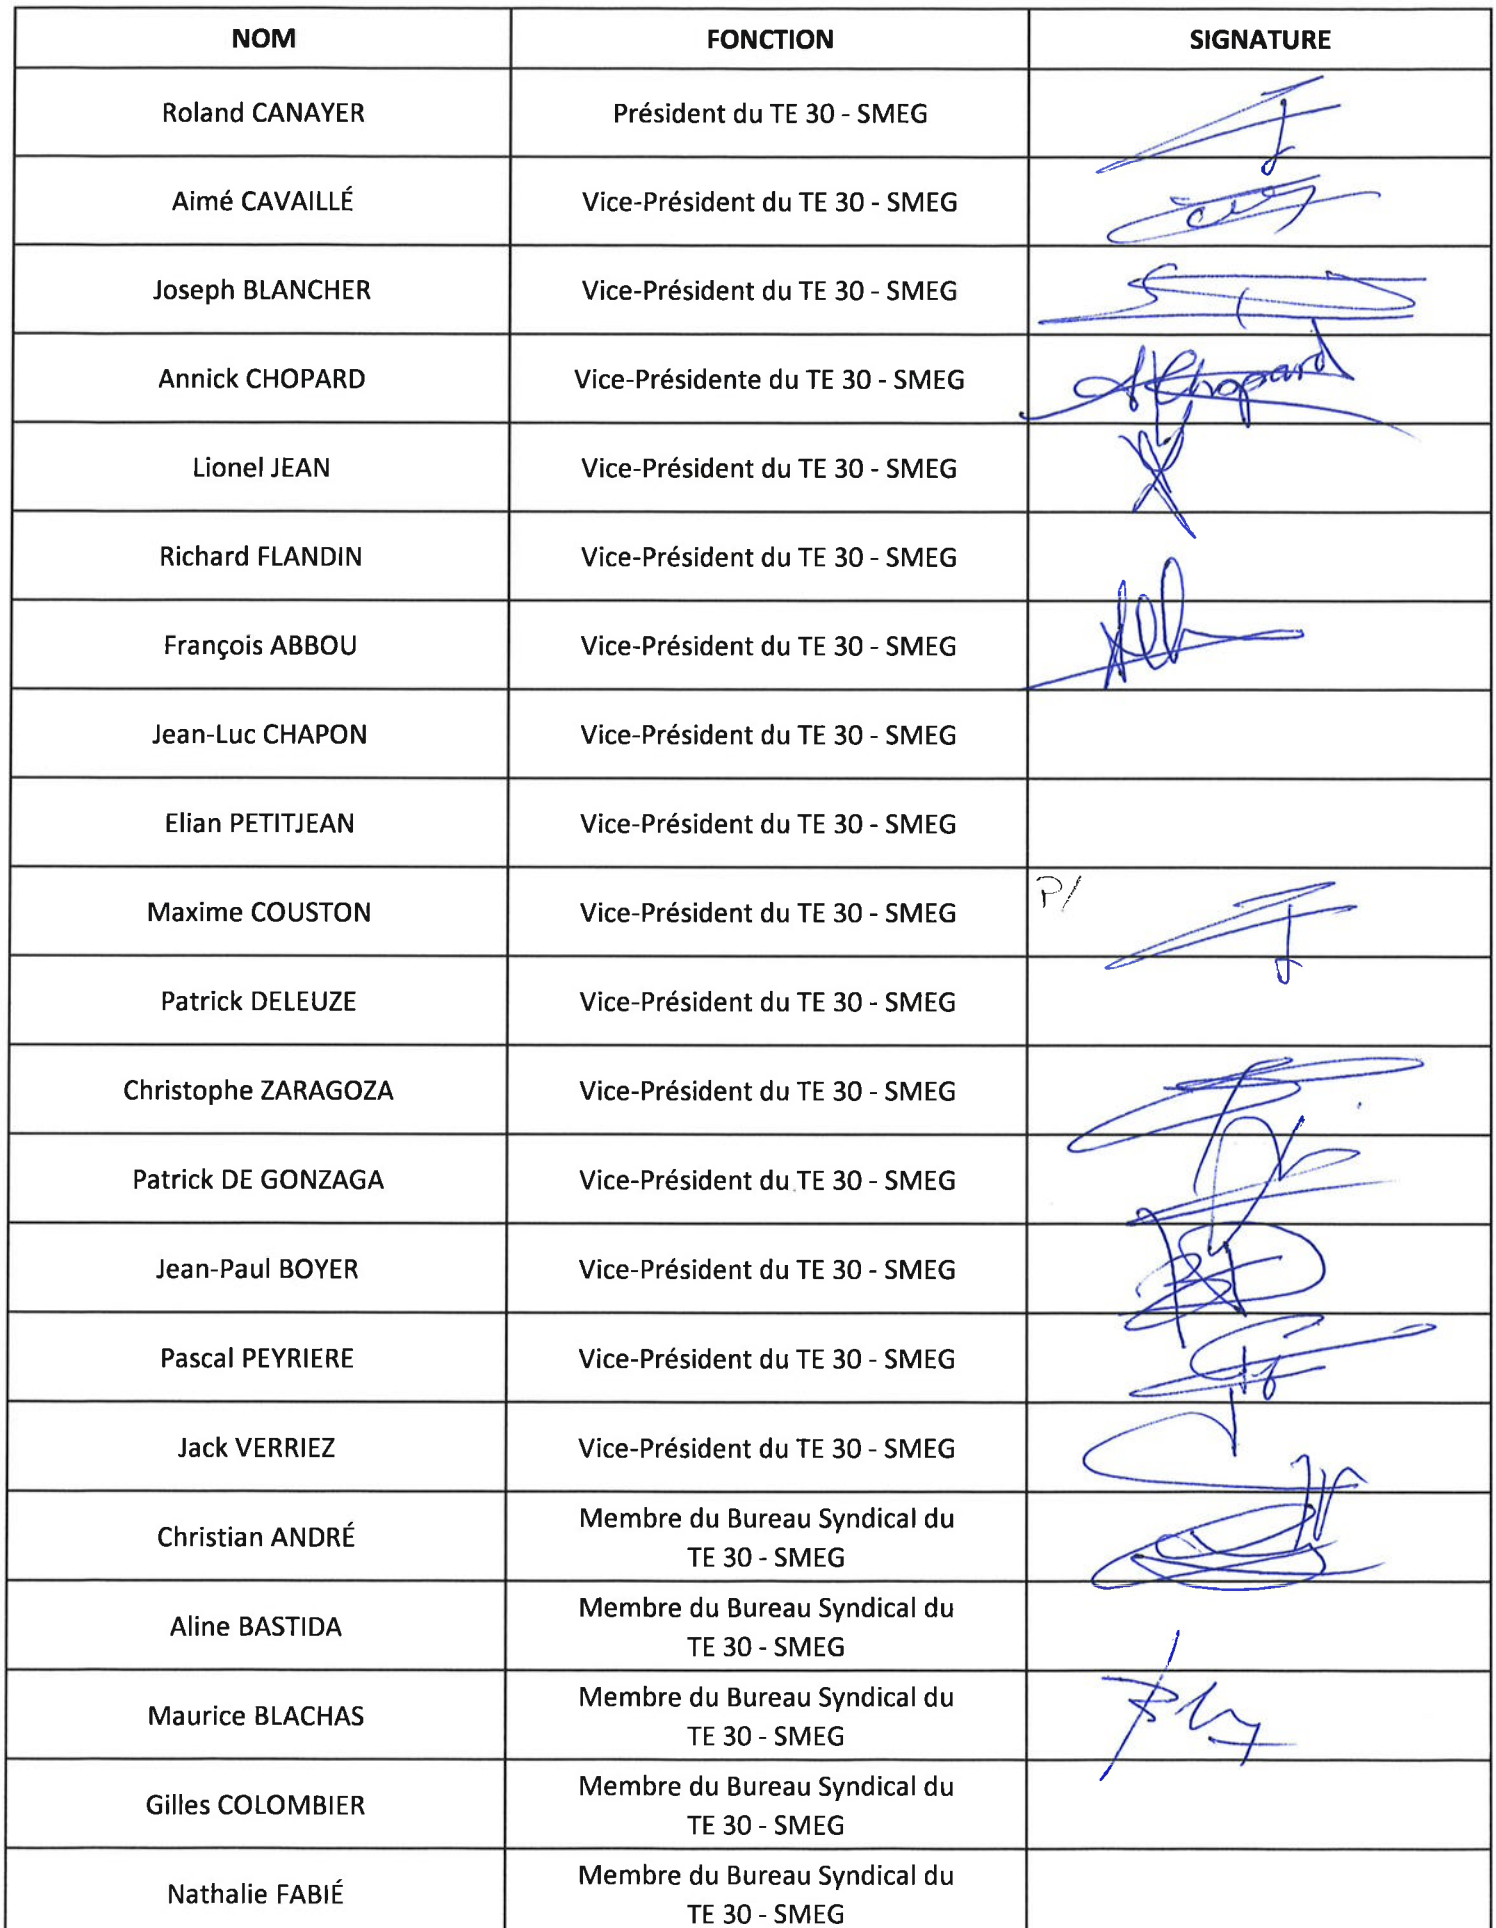 NOM FONCTION SIGNATURE
Roland CANAYER Président du TE 30 - SMEG
Aimé CAVAILLÉ Vice-Président du TE 30 - SMEG
Joseph BLANCHER Vice-Président du TE 30 - SMEG
Annick CHOPARD Vice-Présidente du TE 30 - SMEG AChopard
Lionel JEAN Vice-Président du TE 30 - SMEG
Richard FLANDIN Vice-Président du TE 30 - SMEG
François ABBOU Vice-Président du TE 30 - SMEG
Jean-Luc CHAPON Vice-Président du TE 30 - SMEG
Elian PETITJEAN Vice-Président du TE 30 - SMEG
Maxime COUSTON Vice-Président du TE 30 - SMEG P/
Patrick DELEUZE Vice-Président du TE 30 - SMEG
Christophe ZARAGOZA Vice-Président du TE 30 - SMEG
Patrick DE GONZAGA Vice-Président du TE 30 - SMEG
Jean-Paul BOYER Vice-Président du TE 30 - SMEG
Pascal PEYRIERE Vice-Président du TE 30 - SMEG
Jack VERRIEZ Vice-Président du TE 30 - SMEG
Christian ANDRÉ Membre du Bureau Syndical du
TE 30 - SMEG
Aline BASTIDA Membre du Bureau Syndical du
TE 30 - SMEG
Maurice BLACHAS Membre du Bureau Syndical du
TE 30 - SMEG
Gilles COLOMBIER Membre du Bureau Syndical du
TE 30 - SMEG
Nathalie FABIÉ Membre du Bureau Syndical du
TE 30 - SMEG